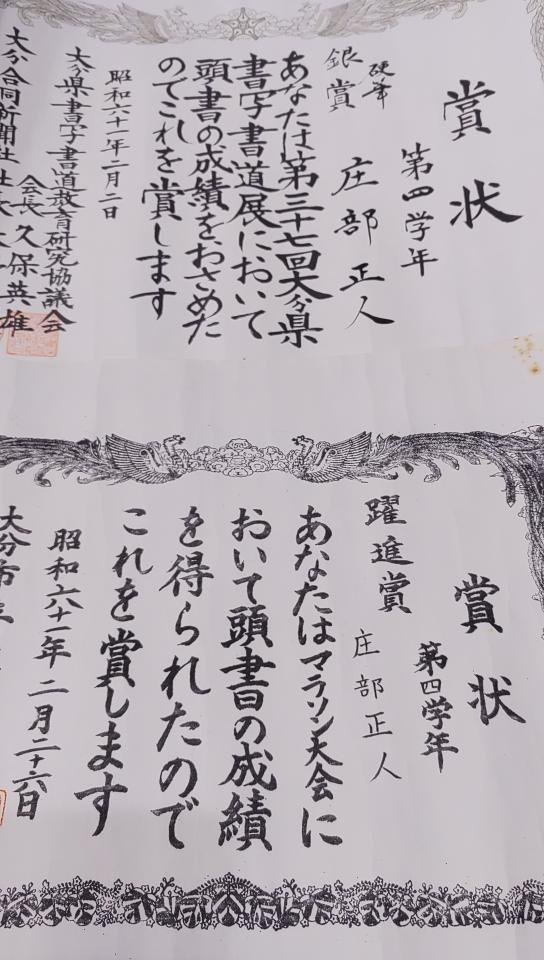 賞状
第四学年
硬筆
銀賞 庄部正人
あなたは第三十七回大分県
書写書道展において
頭書の成績をおさめた
のでこれを賞します
昭和六十一年二月二日
大分県書写書道教育研究協議会
会長 久保英雄
大分合同新聞社 社長
賞状
第四学年
躍進賞
庄部正人
あなたはマラソン大会に
おいて頭書の成績
を得られたので
これを賞します
昭和六十一年二月二十六日
大分市立